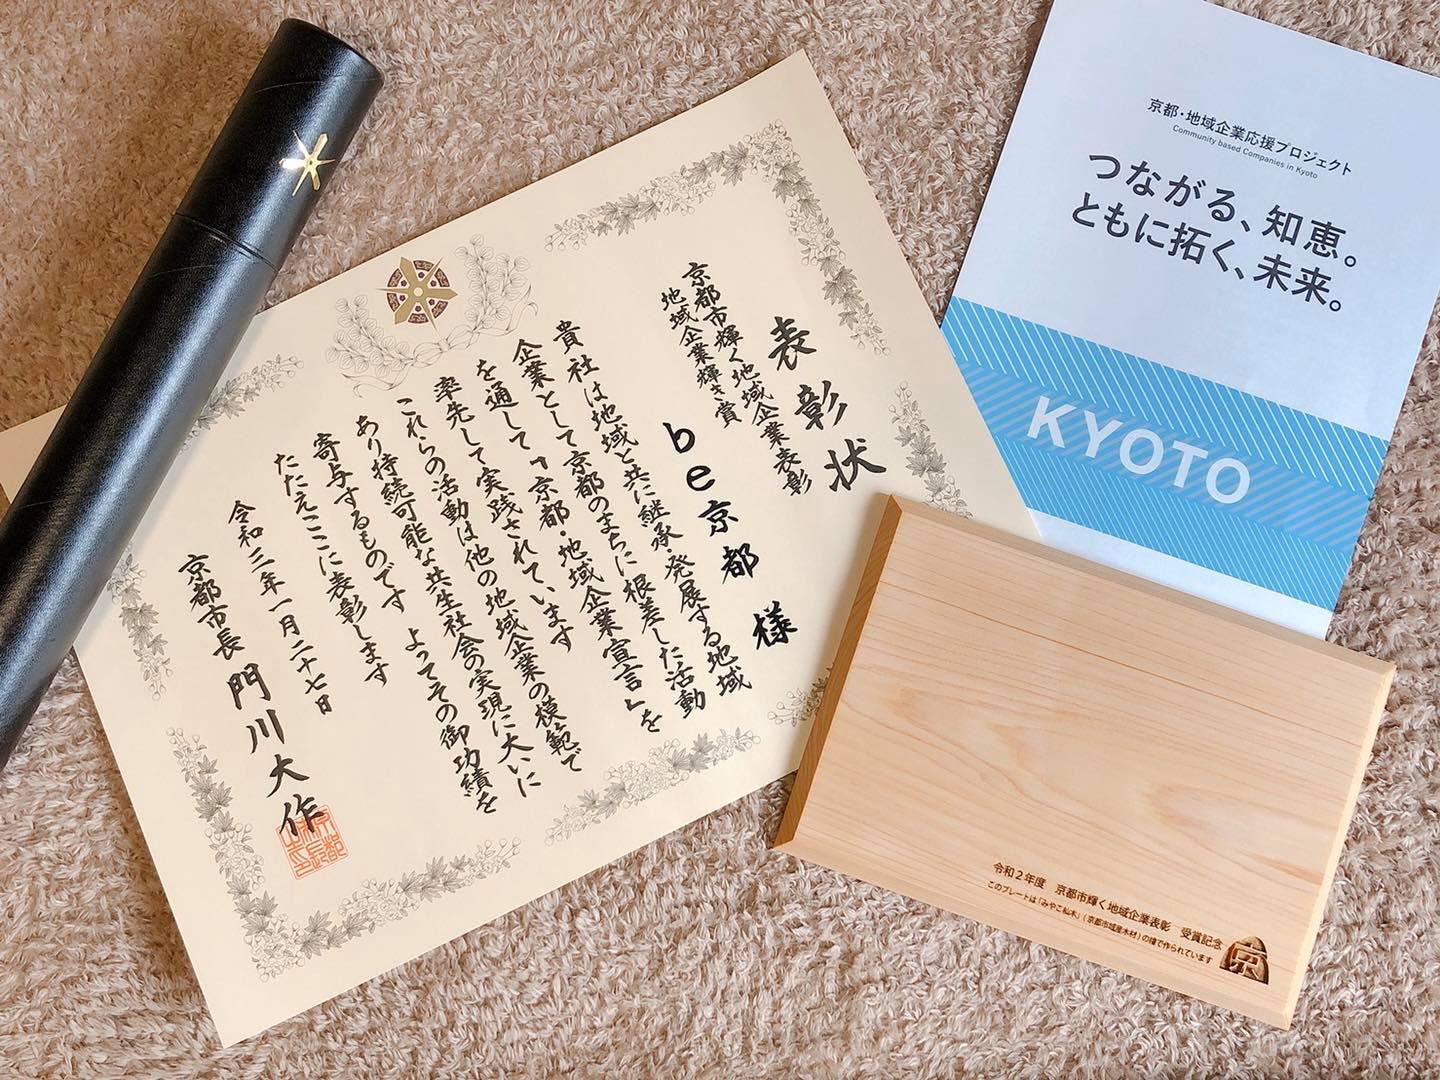 表彰状
京都市輝く地域企業表彰
地域企業輝き賞
be京都 様
貴社は地域と共に継承・発展する地域
企業として京都のまちに根差した活動
を通して「京都・地域企業宣言」を
率先して実践されています
これらの活動は他の地域企業の模範で
あり持続可能な共生社会の実現に大いに
寄与するものです よってその御功績を
たたえここに表彰します
令和三年一月二十七日
京都市長 門川大作
京都・地域企業応援プロジェクト
Community based Companies in Kyoto
つながる、知恵。
ともに拓く、未来。
KYOTO
令和2年度 京都市輝く地域企業表彰 受賞記念
このプレートは「みやこ杣木」(京都市域産木材)の檜で作られています
京